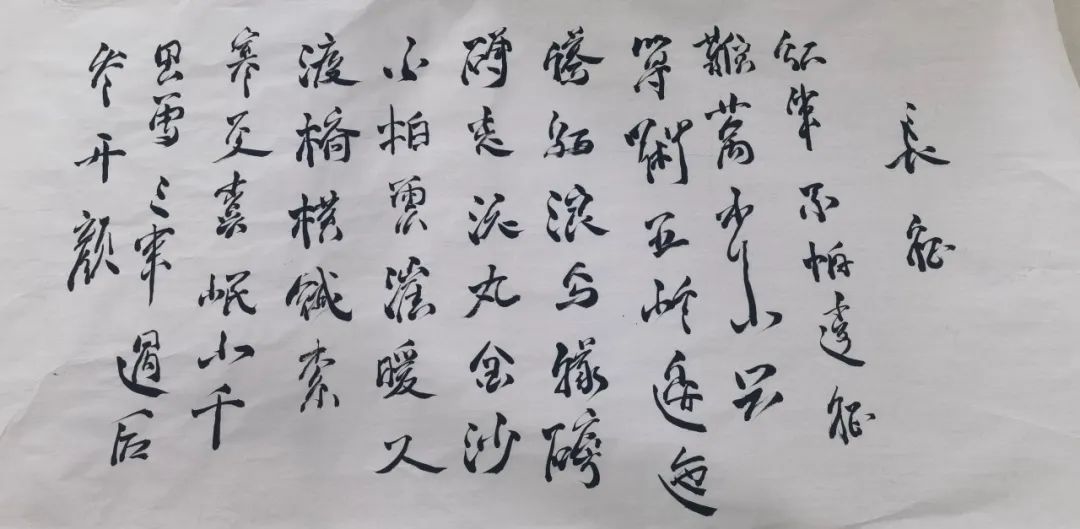 長征
紅軍不怕遠征
難萬水千山只
等閑五岭逶迤
騰細浪烏朦磅
礴走泥丸金沙
水拍雲涯暖大
渡橋橫鐵索
寒更喜岷山千
里雪三軍過后
尽开顏